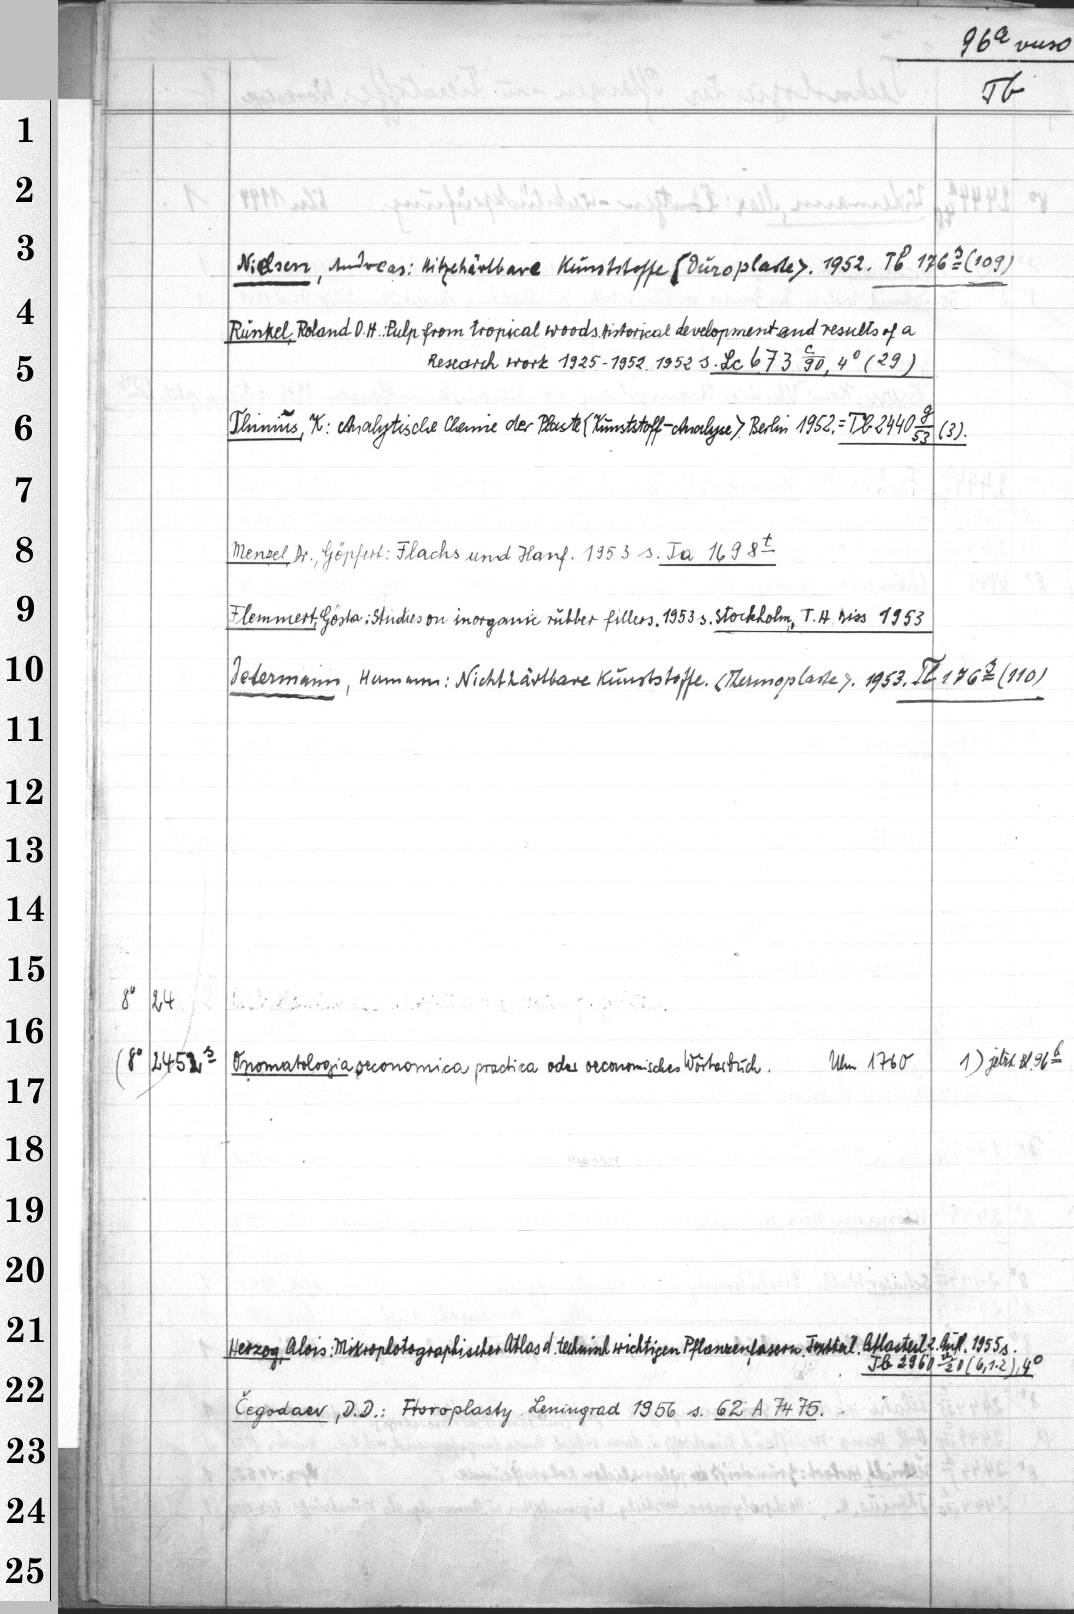 96a verso
Tb
1
2
3
Nielsen, Andreas: Hitzehärtbare Kunststoffe <Duroplaste>. 1952. Tb 1763 (109)
4
Runkel, Roland O.H.: Pulp from tropical woods. historical development and results of a
5
Research work 1925-1952. 1952 s. Lc 673 c/90, 4° (29)
6
Thinius, K: Analytische Chemie der Plaste <Kunststoff-Analyse> Berlin 1952. = Tb 2440 g/53 (3).
7
8
Menzel, Dr., Göpfert: Flachs und Hanf. 1953 s. Ta 1698 t
9
Flemmert, Gösta: Studies on inorganic rubber fillers. 1953 s. Stockholm, T.H. Diss 1953
10
Determann, Hermann: Nichthärtbare Kunststoffe. <Thermoplaste>. 1953. Tb 1763 (110)
11
12
13
14
15
8° 24
16
(8° 2452 s Onomatologia oeconomica practica oder oeconomisches Wörterbuch. Ulm 1760 1) jetzt Bl. 96 b
17
18
19
20
21
Herzog, Alois: Mikrophotographischer Atlas d. technisch wichtigen Pflanzenfasern. Textteil. Atlasteil 2. Aufl. 1955 s.
Tb 2960 /20 (6,1.2), 4°
22
Čegodaev, D.D.: Ftoroplasty. Leningrad 1956 s. 62 A 7475.
23
24
25